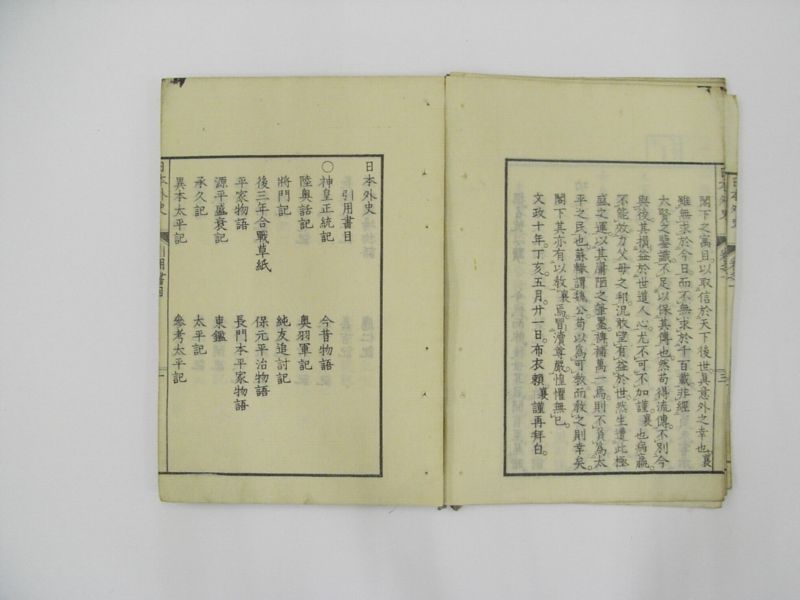 閣下之寓目以取信於天下後世真意外之幸也襄
雖無求於今日而不無求於千百載非經
太賢之鑒識不足以保其傳也然苟得流傳不別今
與後其損益於世道人心尤不可不加謹襄也病羸
不能效力父母之邦況敢望有益於世然生遭此極
盛之運以其庸陋之筆墨裨補萬一焉則不負為太
平之民也蘇轍謂魏公苟以為可教而教之則幸矣
閣下其亦有以教襄焉冒瀆尊嚴惶懼無已
文政十年丁亥五月廿一日布衣賴襄謹再拜白
日本外史
引用書目
〇神皇正統記 今昔物語
陸奥話記 奥羽軍記
將門記 純友追討記
後三年合戰草紙 保元平治物語
平家物語 長門本平家物語
源平盛衰記 東鑑
承久記 太平記
異本太平記 參考太平記
日本外史 引用書目 一